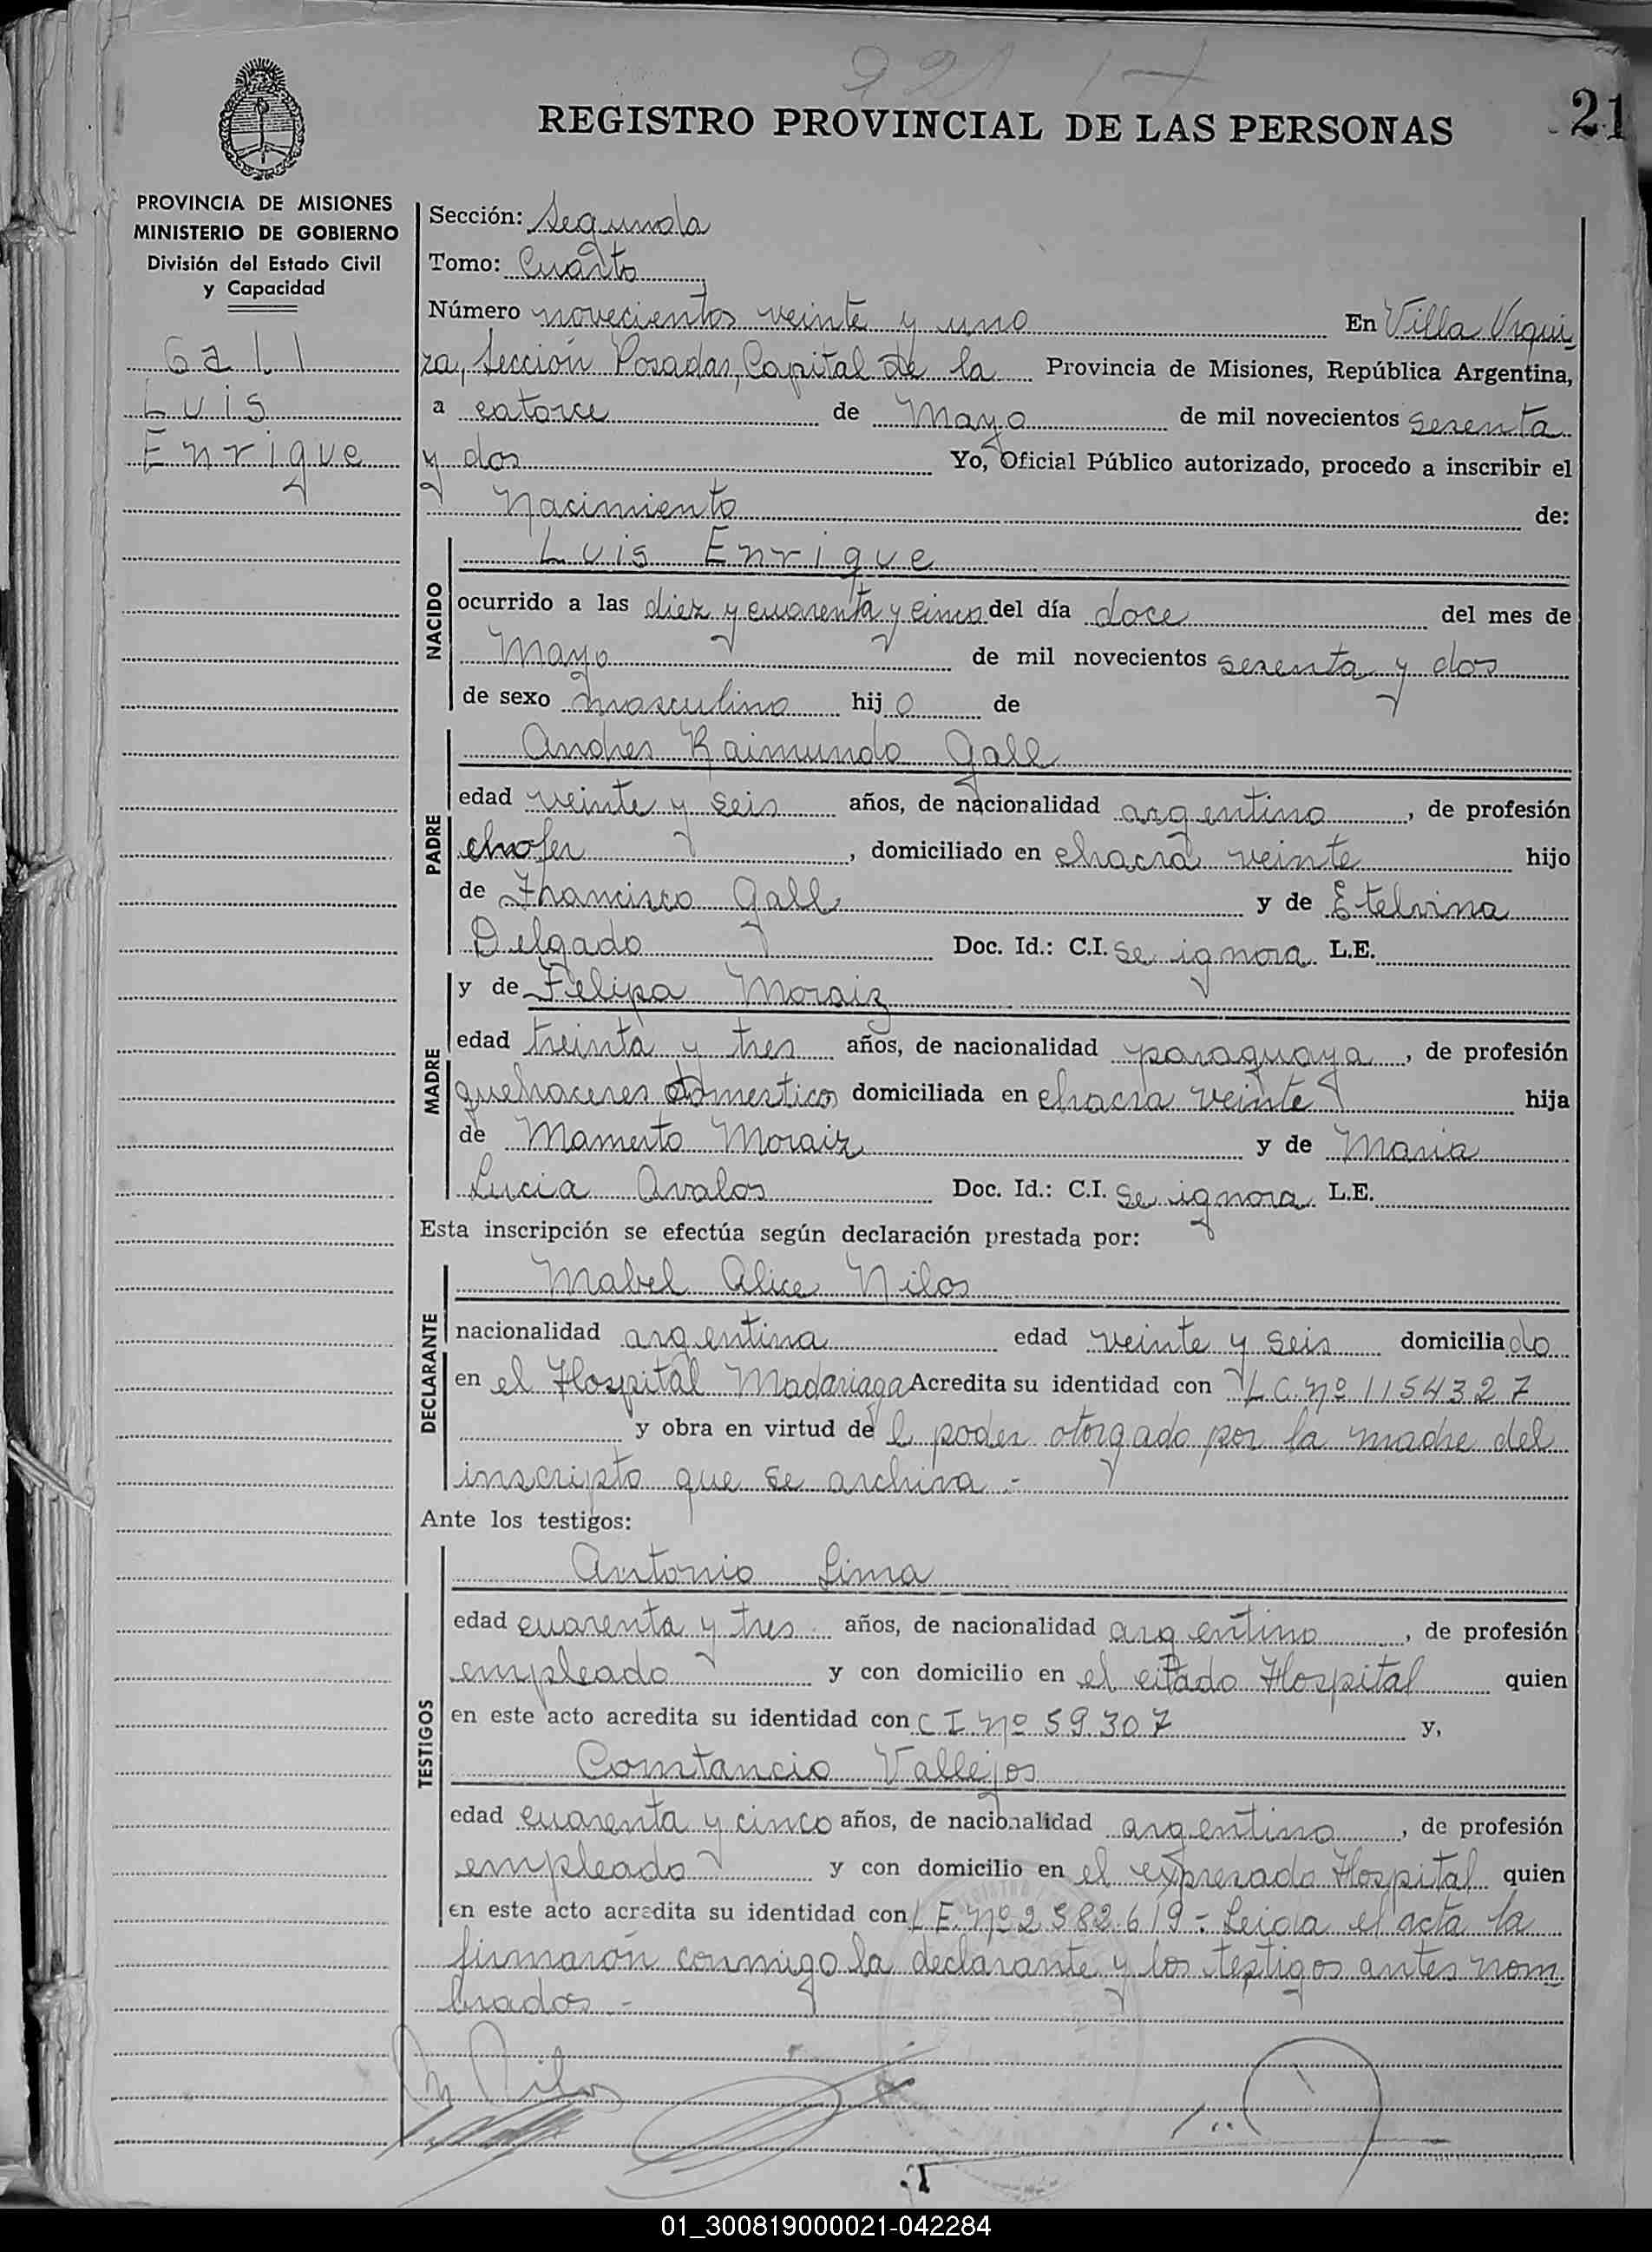 REGISTRO PROVINCIAL DE LAS PERSONAS
21
PROVINCIA DE MISIONES
MINISTERIO DE GOBIERNO
División del Estado Civil
y Capacidad
Gall
Luis
Enrique
Sección: Segunda
Tomo: Cuarto
Número novecientos veinte y uno En Villa Urqui-
za, Sección Posadas, Capital de la Provincia de Misiones, República Argentina,
a catorce de Mayo de mil novecientos sesenta
y dos Yo, Oficial Público autorizado, procedo a inscribir el
Nacimiento de:
NACIDO
Luis Enrique
ocurrido a las diez y cuarenta y cinco del día doce del mes de
Mayo de mil novecientos sesenta y dos
de sexo masculino hijo de
PADRE
Andres Raimundo Gall
edad veinte y seis años, de nacionalidad argentino, de profesión
chofer, domiciliado en chacra veinte hijo
de Francisco Gall y de Etelvina
Delgado Doc. Id.: C.I. se ignora L.E.
MADRE
y de Felipa Moraiz
edad treinta y tres años, de nacionalidad paraguaya, de profesión
quehaceres domesticos domiciliada en chacra veinte hija
de Mamerto Moraiz y de Maria
Lucia Avalos Doc. Id.: C.I. se ignora L.E.
Esta inscripción se efectúa según declaración prestada por:
DECLARANTE
Mabel Alice Nilos
nacionalidad argentina edad veinte y seis domiciliado
en el Hospital Madariaga Acredita su identidad con L.C. Nº 1154327
y obra en virtud del poder otorgado por la madre del
inscripto que se archiva.-
Ante los testigos:
TESTIGOS
Antonio Lima
edad cuarenta y tres años, de nacionalidad argentino, de profesión
empleado y con domicilio en el citado Hospital quien
en este acto acredita su identidad con C I Nº 59307 y,
Constancio Vallejos
edad cuarenta y cinco años, de nacionalidad argentino, de profesión
empleado y con domicilio en el expresado Hospital quien
en este acto acredita su identidad con L E. Nº 2582619.- Leida el acta la
firmaron conmigo la declarante y los testigos antes nom-
brados.-
M Nilos
01_300819000021-042284